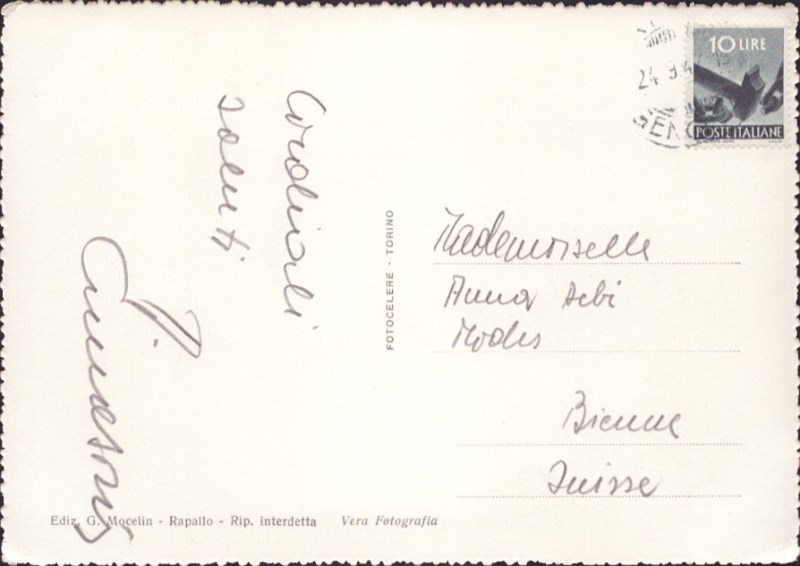 Cordiali
saluti
10 LIRE
24 9 4
GENO
POSTE ITALIANE
FOTOCELERE - TORINO
Mademoiselle
Anna Aebi
Modes
Bienne
Suisse
Ediz. G. Mocelin - Rapallo - Rip. interdetta Vera Fotografia